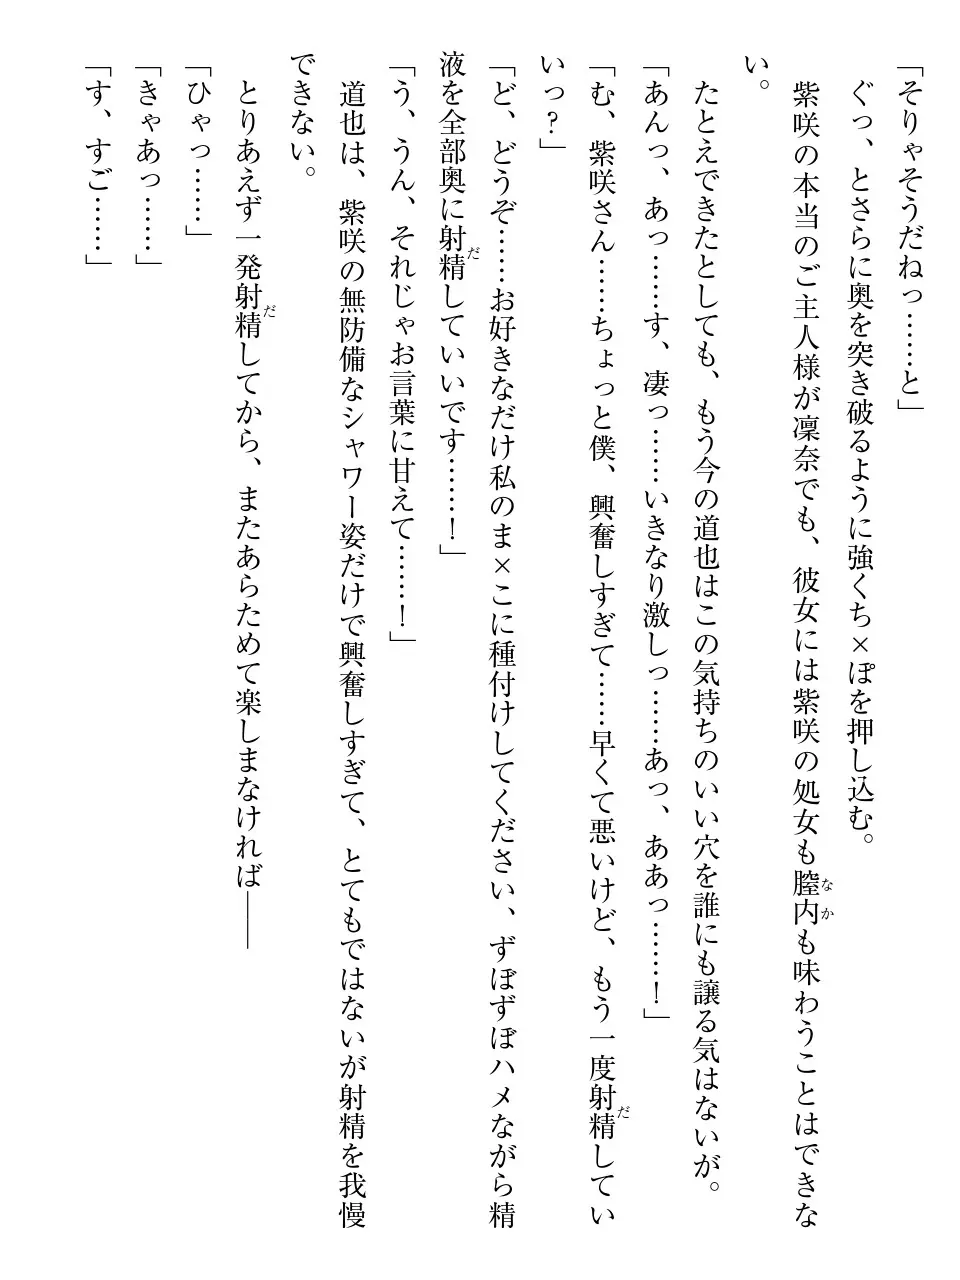 「そりゃそうだねっ……と」
ぐっ、とさらに奥を突き破るように強くち×ぽを押し込む。
紫咲の本当のご主人様が凜奈でも、彼女には紫咲の処女も膣内も味わうことはできな
い。
たとえできたとしても、もう今の道也はこの気持ちのいい穴を誰にも譲る気はないが。
「あんっ、あっ……す、凄っ……いきなり激しっ……あっ、ああっ……！」
「む、紫咲さん……ちょっと僕、興奮しすぎて……早くて悪いけど、もう一度射精してい
いっ？」
「ど、どうぞ……お好きなだけ私のま×こに種付けしてください、ずぼずぼハメながら精
液を全部奥に射精していいです……！」
「う、うん、それじゃお言葉に甘えて……！」
道也は、紫咲の無防備なシャワー姿だけで興奮しすぎて、とてもではないが射精を我慢
できない。
とりあえず一発射精してから、またあらためて楽しまなければ――
「ひゃっ……」
「きゃあっ……」
「す、すご……」